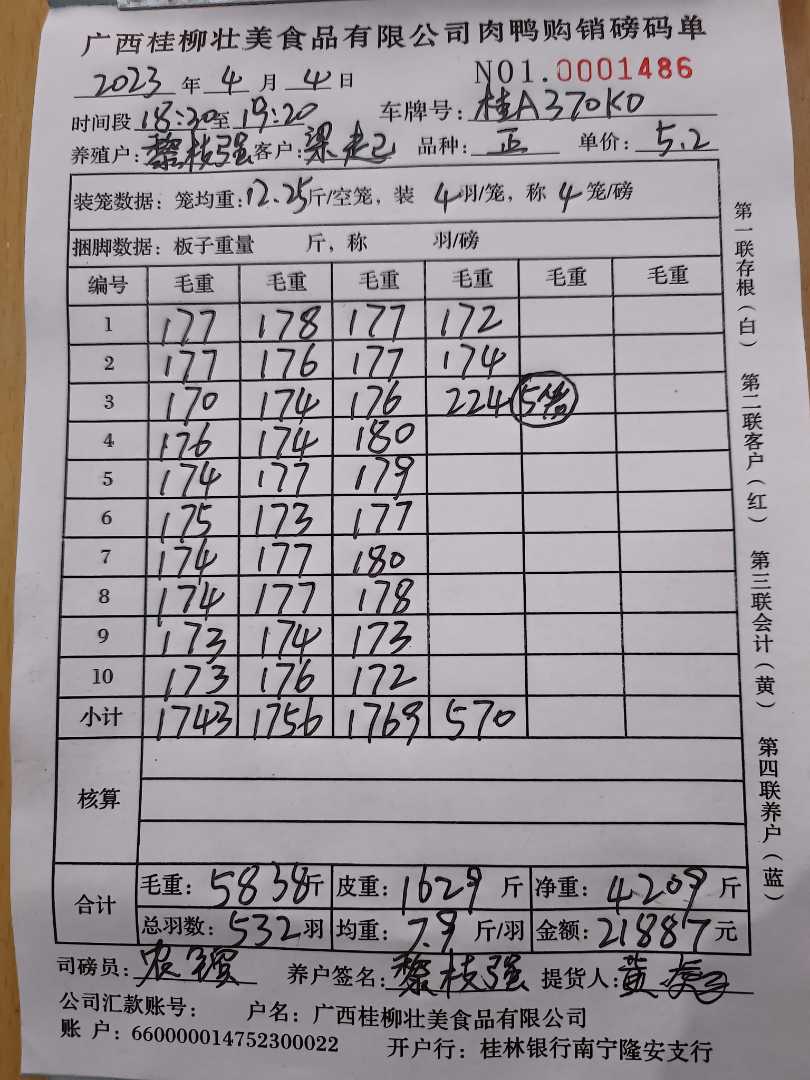 广西桂柳壮美食品有限公司肉鸭购销磅码单
2023 年 4 月 4 日 NO1.0001486
时间段 18:30至 19:20 车牌号: 桂A370K0
养殖户: 黎枝强 客户: 梁 品种: 正 单价: 5.2
装笼数据: 笼均重: 12.25斤/空笼, 装 4羽/笼, 称 4 笼/磅
捆脚数据: 板子重量 斤, 称 羽/磅
编号 毛重 毛重 毛重 毛重 毛重 毛重
1 177 178 177 172
2 177 176 177 174
3 170 174 176 224 5笼
4 176 174 180
5 174 177 179
6 175 173 177
7 174 177 180
8 174 177 178
9 173 174 173
10 173 176 172
小计 1743 1756 1769 570
核算
合计
毛重: 5838斤 皮重: 1629 斤 净重: 4209 斤
总羽数: 532 羽 均重: 7.9 斤/羽 金额: 21887 元
司磅员: 农 养户签名: 黎枝强 提货人: 黄
公司汇款账号: 户名: 广西桂柳壮美食品有限公司
账 户: 660000014752300022 开户行: 桂林银行南宁隆安支行
第一联存根(白)
第二联客户(红)
第三联会计(黄)
第四联养户(蓝)